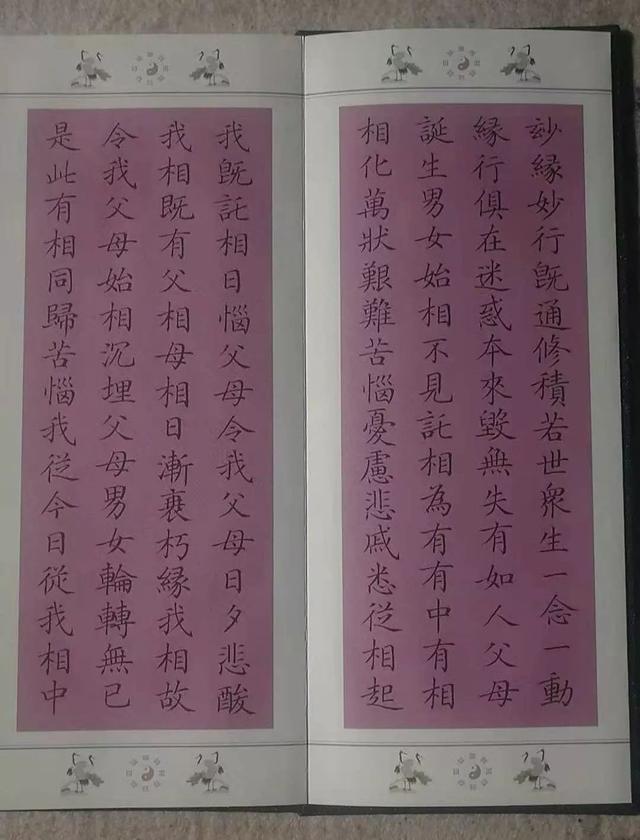 玅緣妙行旣通修積若世衆生一念一動
緣行俱在迷惑本來毀無失有如人父母
誕生男女始相不見託相為有有中有相
相化萬狀艱難苦惱憂慮悲戚悉從相起
我旣託相日惱父母令我父母日夕悲酸
我相既有父相母相日漸衰朽緣我相故
令我父母始相沉埋父母男女輪轉無已
是此有相同歸苦惱我從今日從我相中